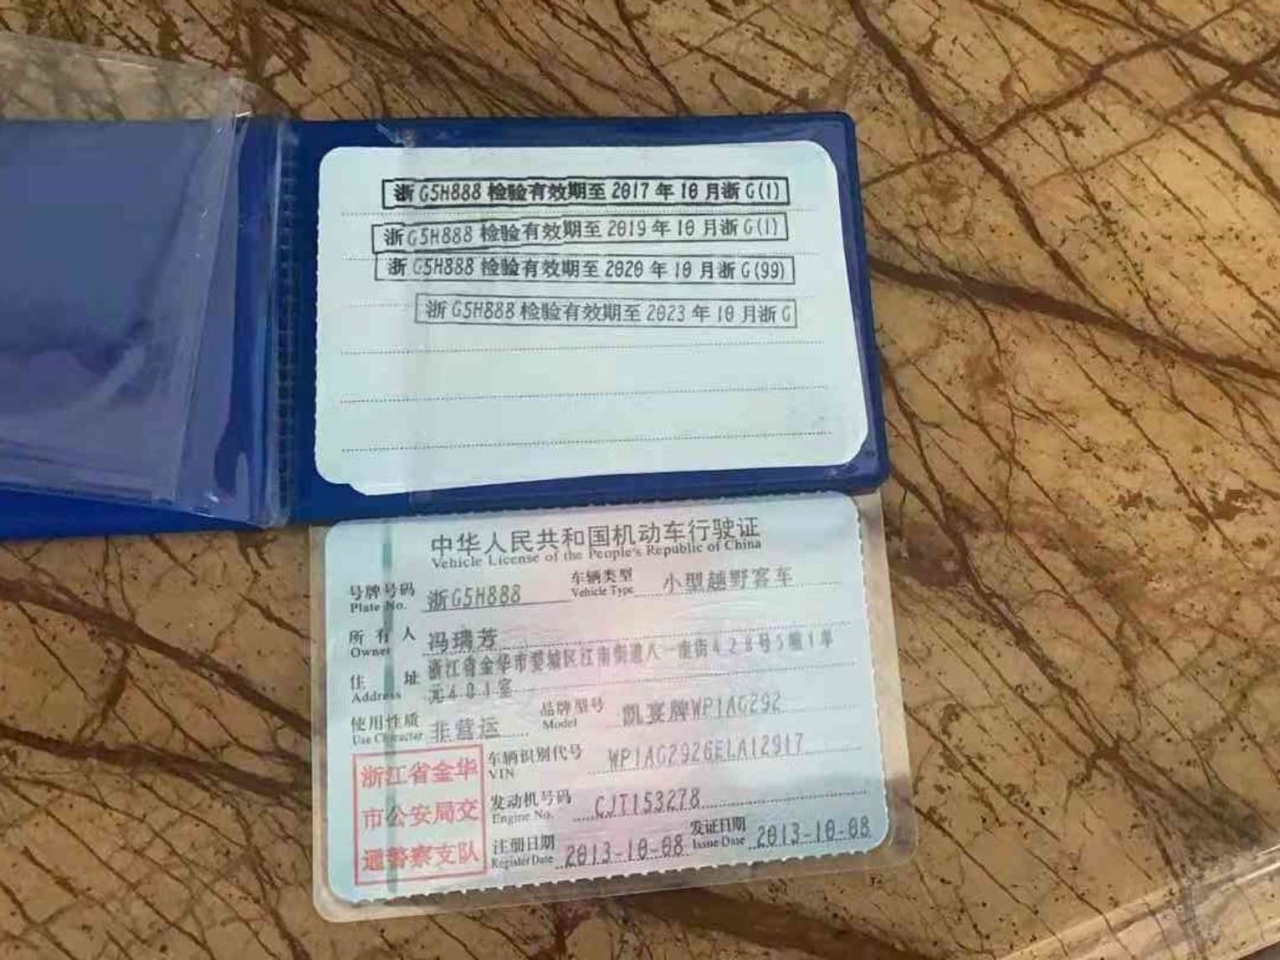 浙G5H888检验有效期至2017年10月浙G(1)
浙G5H888检验有效期至2019年10月浙G(1)
浙G5H888检验有效期至2020年10月浙G(99)
浙G5H888检验有效期至2023年10月浙G
中华人民共和国机动车行驶证
Vehicle License of the People's Republic of China
号牌号码 Plate No. 浙G5H888 车辆类型 Vehicle Type 小型越野客车
所有人 Owner 冯瑞芳
住址 Address 浙江省金华市婺城区江南街道八一南街428号5幢1单
元401室
使用性质 Use Character 非营运 品牌型号 Model 凯宴牌WP1AG292
车辆识别代号 VIN WP1AG2926ELA12917
发动机号码 Engine No. CJT153278
注册日期 Register Date 2013-10-08 发证日期 Issue Date 2013-10-08
浙江省金华
市公安局交
通警察支队